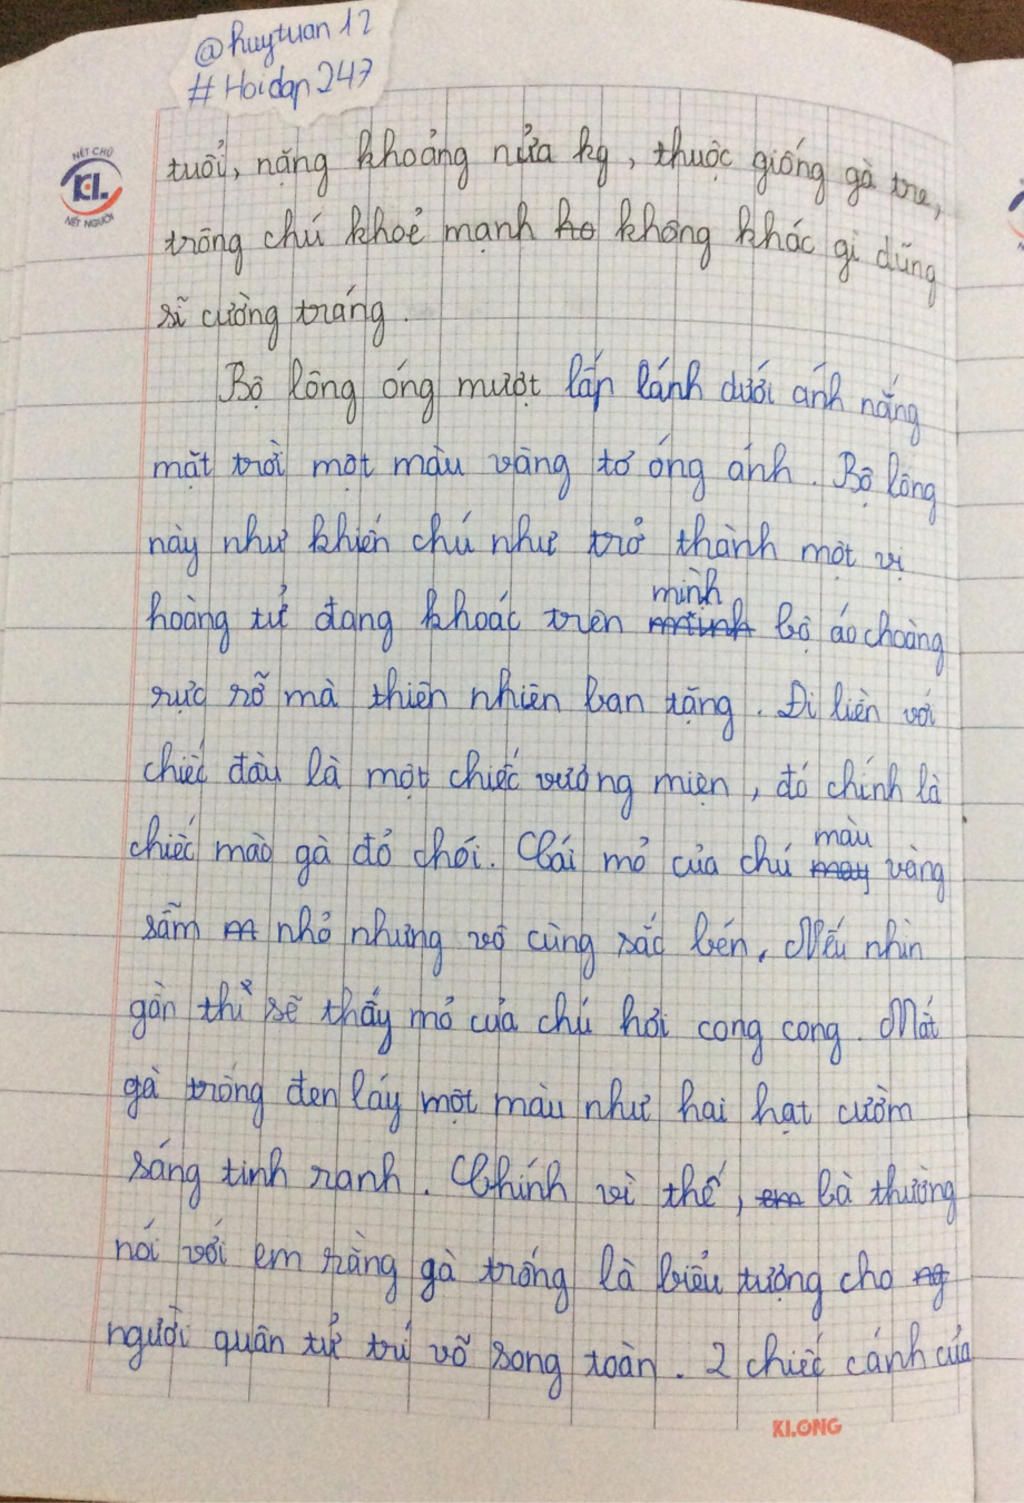 @huytuan12
#Hoidap247
NÉT CHỮ
KL
NẾT NGƯỜI
tuổi, nặng khoảng nửa kg, thuộc giống gà tre,
trông chú khoẻ mạnh ko không khác gì dũng
sĩ cường tráng.
Bộ lông óng mượt lấp lánh dưới ánh nắng
mặt trời một màu vàng tơ óng ánh. Bộ lông
này như khiến chú như trở thành một vị
hoàng tử đang khoác trên mình bộ áo choàng
rực rỡ mà thiên nhiên ban tặng. Đi liền với
chiếc đầu là một chiếc vương miện, đó chính là
chiếc mào gà đỏ chói. Cái mỏ của chú màu may vàng
sẫm m nhỏ nhưng vô cùng sắc bén. Nếu nhìn
gần thì sẽ thấy mỏ của chú hơi cong cong. Mắt
gà trống đen láy một màu như hai hạt cườm
sáng tinh ranh. Chính vì thế, em bà thường
nói với em rằng gà trống là biểu tượng cho ng
người quân tử trí võ song toàn. 2 chiếc cánh của
KLONG